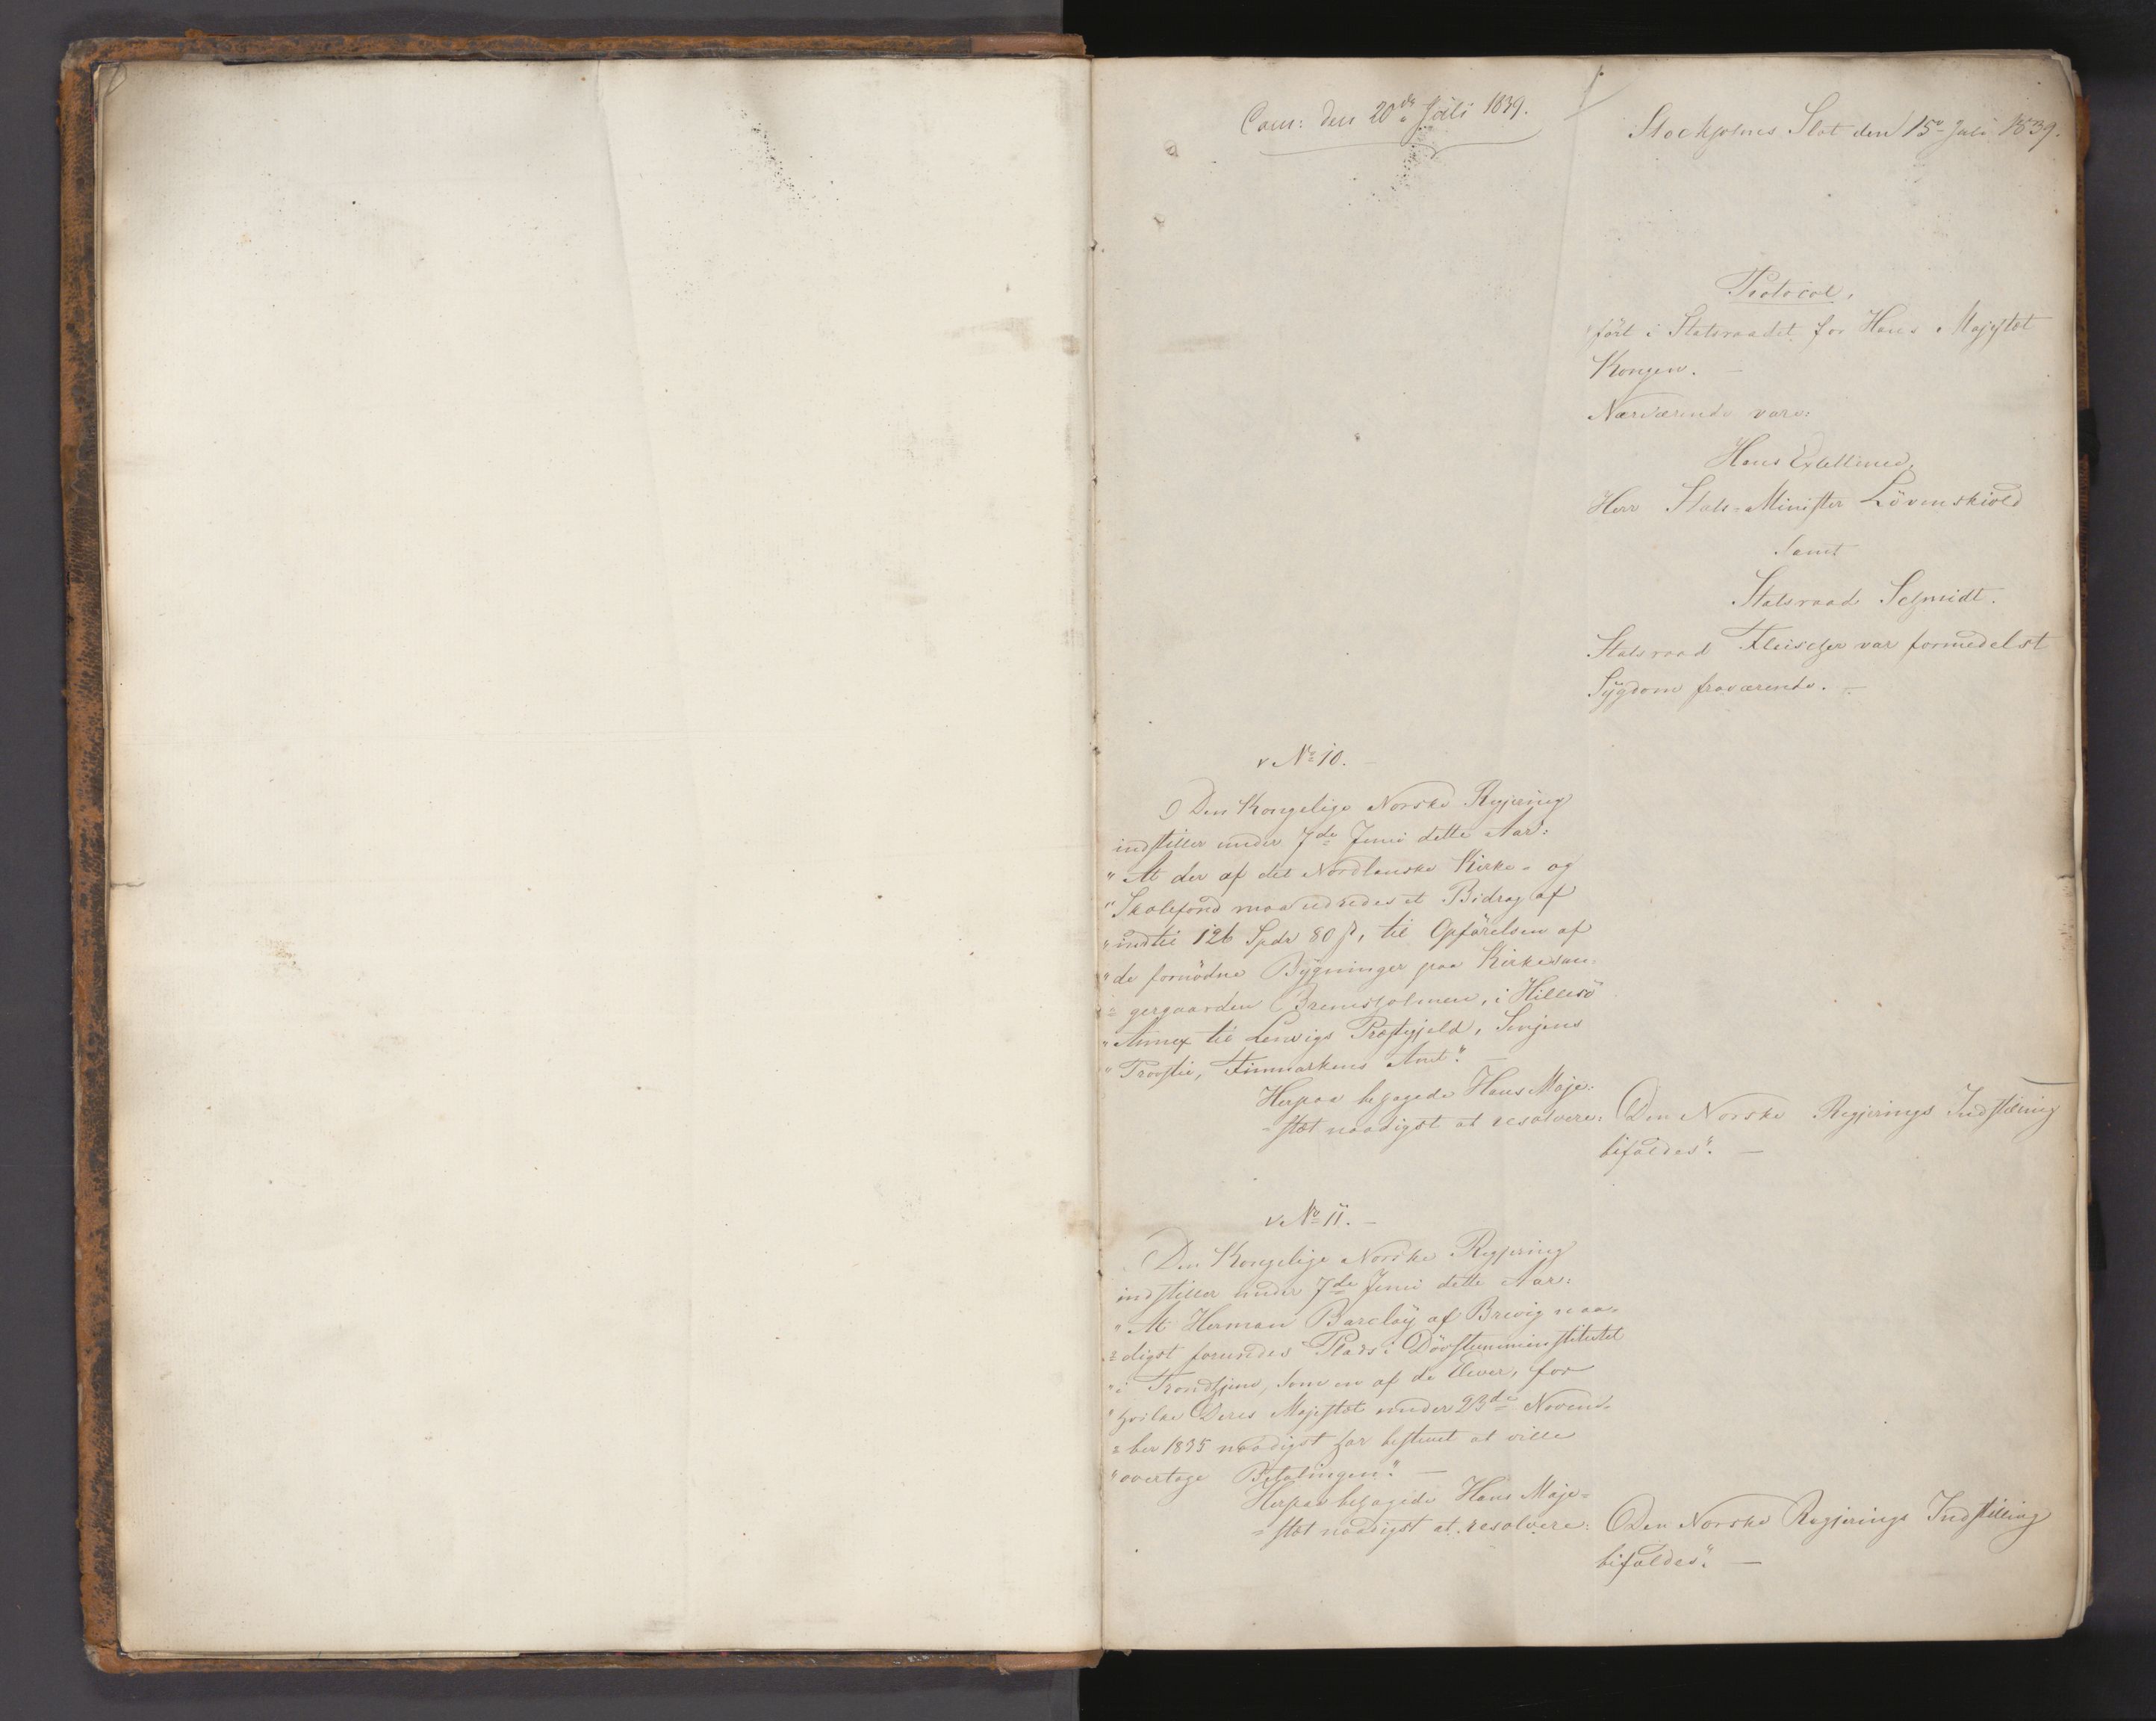 Com: den 20de Juli 1839.
Stockholms Slot den 15de Juli 1839.
Protocol,
ført i Statsraadet for Hans Majestæt
Kongen. —
Nærværende vare:
Hans Excellence,
Herr Stats-Minister Lövenskiold
samt
Statsraad Schmidt.
Statsraad Fleischer var formedelst
Sÿgdom fraværende. —
No 10. —
Den Kongelige Norske Regjering
indstiller under 7de Juni dette Aar:
" At der af det Nordlanske Kirke- og
" Skolefond maa udredes et Bidrag af
" indtil 126 Spdr 80 ß, til Opförelsen af
" de fornödne Bÿgninger paa Kirkesan-
= gergaarden Bremsholmen, i Hillesö
" Annex til Lenvigs Præstegjeld, Senjens
" Provstie, Finmarkens Amt". —
Herpaa behagede Hans Maje-
= stæt naadigst at resolvere:
Den Norske Regjerings Indstilling
bifaldes". —
No 11. —
Den Kongelige Norske Regjering
indstiller under 7de Juni dette Aar:
" At Herman Barclaÿ af Brevig naa-
= digst forundes Plads i Dövstumminstitutet
" i Trondhjem, som en af de Elever, for
" hvilke Deres Majestæt under 23de Novem-
= ber 1835 naadigst har bestemt at ville
" overtage Betalingen". —
Herpaa behagede Hans Maje-
= stæt naadigst at resolvere:
Den Norske Regjerings Indstilling
bifaldes". —